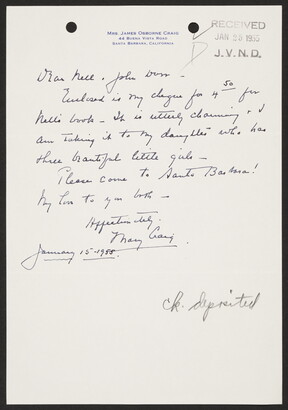 MRS. JAMES OSBORNE CRAIG
42 BUENA VISTA ROAD
SANTA BARBARA, CALIFORNIA
RECEIVED
JAN 20 1955
J. V. N. D.
Dear Nell & John Dorr -
Enclosed is my cheque for 4.50 for
Nell's book - It is utterly charming & I
am taking it to my daughter who has
three beautiful little girls -
Please come to Santa Barbara!
My love to you both -
Affectionately,
Mary Craig
January 15 - 1955.
ck. deposited